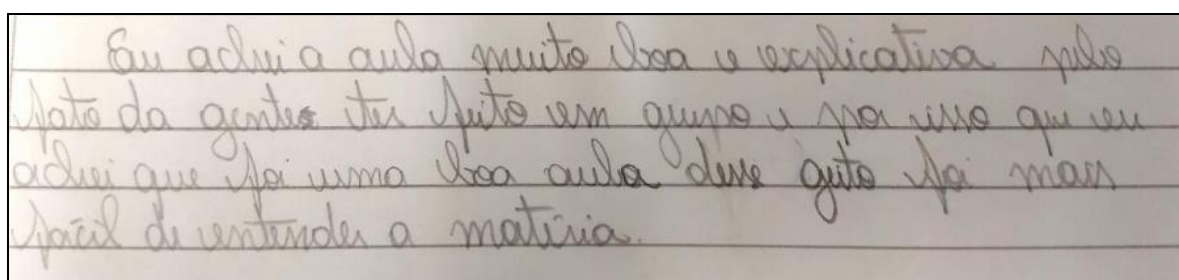 Eu achei a aula muito boa e explicativa pelo
fato da gente ter feito em grupo e por isso que eu
achei que foi uma boa aula desse geito foi mais
fácil de entender a matéria.